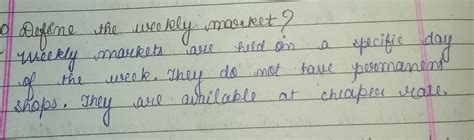 Define the weekly market?
Weekly markets are held on a specific day
of the week. They do not have permanent
shops. They are available at cheaper rate.